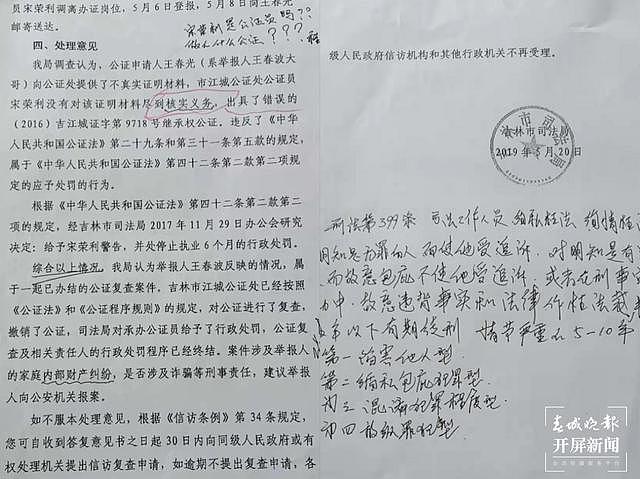 员宋荣利调离办证岗位，5月6日登报，5月8日向王春光
邮寄送达。
宋荣利是公证员吗？？
做人什么公证？？？
四、处理意见
我局调查认为，公证申请人王春光（系举报人王春波大
哥）向公证处提供了不真实证明材料，市江城公证处公证员
宋荣利没有对该证明材料尽到核实义务，出具了错误的
（2016）吉江城证字第9718号继承权公证。违反了《中华
人民共和国公证法》第二十九条和第三十一条第五款的规定，
属于《中华人民共和国公证法》第四十二条第二款第二项规
定的应予处罚的行为。
根据《中华人民共和国公证法》第四十二条第二款第二
项的规定，经吉林市司法局2017年11月29日办公会研究
决定：给予宋荣利警告，并处停止执业6个月的行政处罚。
综合以上情况，我局认为举报人王春波反映的情况，属
于一起已办结的公证复查案件。吉林市江城公证处已经按照
《公证法》和《公证程序规则》的规定，对公证进行了复查，
撤销了公证，司法局对承办公证员给予了行政处罚，公证复
查及相关责任人的行政处罚程序已经终结。案件涉及举报人
的家庭内部财产纠纷，是否涉及诈骗等刑事责任，建议举报
人向公安机关报案。
如不服本处理意见，根据《信访条例》第34条规定，
您可自收到答复意见书之日起30日内向同级人民政府或有
权处理机关提出信访复查申请，如逾期不提出复查申请，各
级人民政府信访机构和其他行政机关不再受理。
吉林市司法局
2019年5月20日
刑法第399条 司法工作人员 徇私枉法 徇情枉法
明知是无罪的人而使他受追诉，对明知是有
而故意包庇不使他受追诉，或者在刑事
中，故意违背事实和法律作枉法裁
年以下有期徒刑 情节严重在5-10年
第一陷害他人型
第二徇私包庇犯罪型
第四放纵罪犯型
春城晚报
开屏新闻